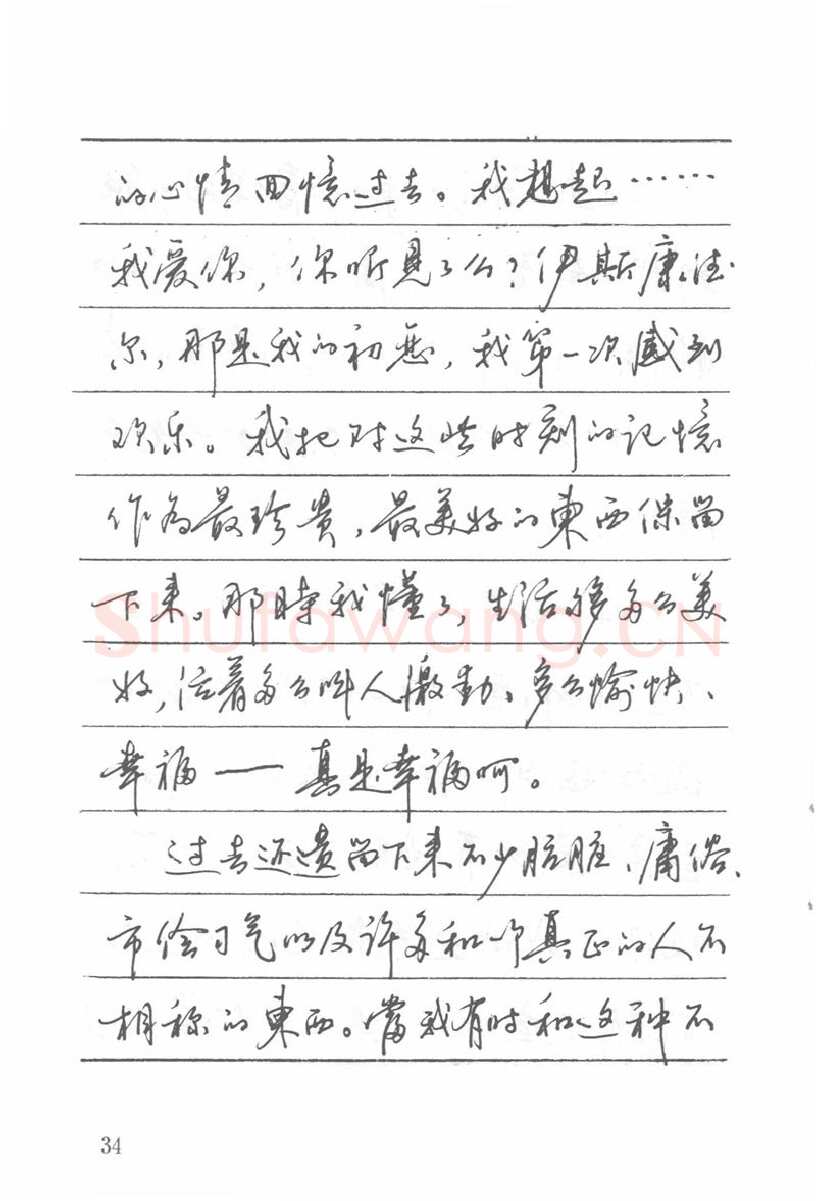 的心情回憶过去。我想起……
我爱你，你听見了么？伊斯康德
尔，那是我的初恋，我第一次感到
欢乐。我把对这些时刻的记憶
作為最珍贵，最美好的東西保留
下来。那時我懂了，生活够多么美
好，活着多么叫人激動。多么愉快、
幸福——真是幸福呵。
过去还遗留下来不少肮脏、庸俗、
市侩习气以及许多和一个真正的人不
相称的東西。當我有时和这种不
34
Shufawang.CN